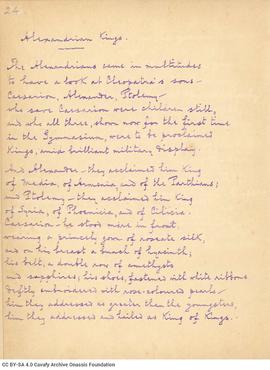 24
Alexandrian Kings.
The Alexandrians came in multitudes
to have a look at Cleopatra's sons—
Caesarion, Alexander, Ptolemy—
who save Caesarion were children still,
and who all three, shown now for the first time
in the Gymnasium, were to be proclaimed
Kings, amid brilliant military display.
And Alexander—they acclaimed him King
of Media, of Armenia, and of the Parthians;
and Ptolemy—they acclaimed him King
of Syria, of Phoenicia, and of Cilicia.
Caesarion—he stood more in front,
wearing a princely gown of roseate silk,
and on his breast a bunch of hyacinth;
his belt, a double row of amethysts
and sapphires; his shoes, fastened with white ribbons
deftly embroidered with rose-coloured pearls—
him they addressed as greater than the youngsters,
him they addressed and hailed as King of Kings.—
CC BY-SA 4.0 Cavafy Archive Onassis Foundation